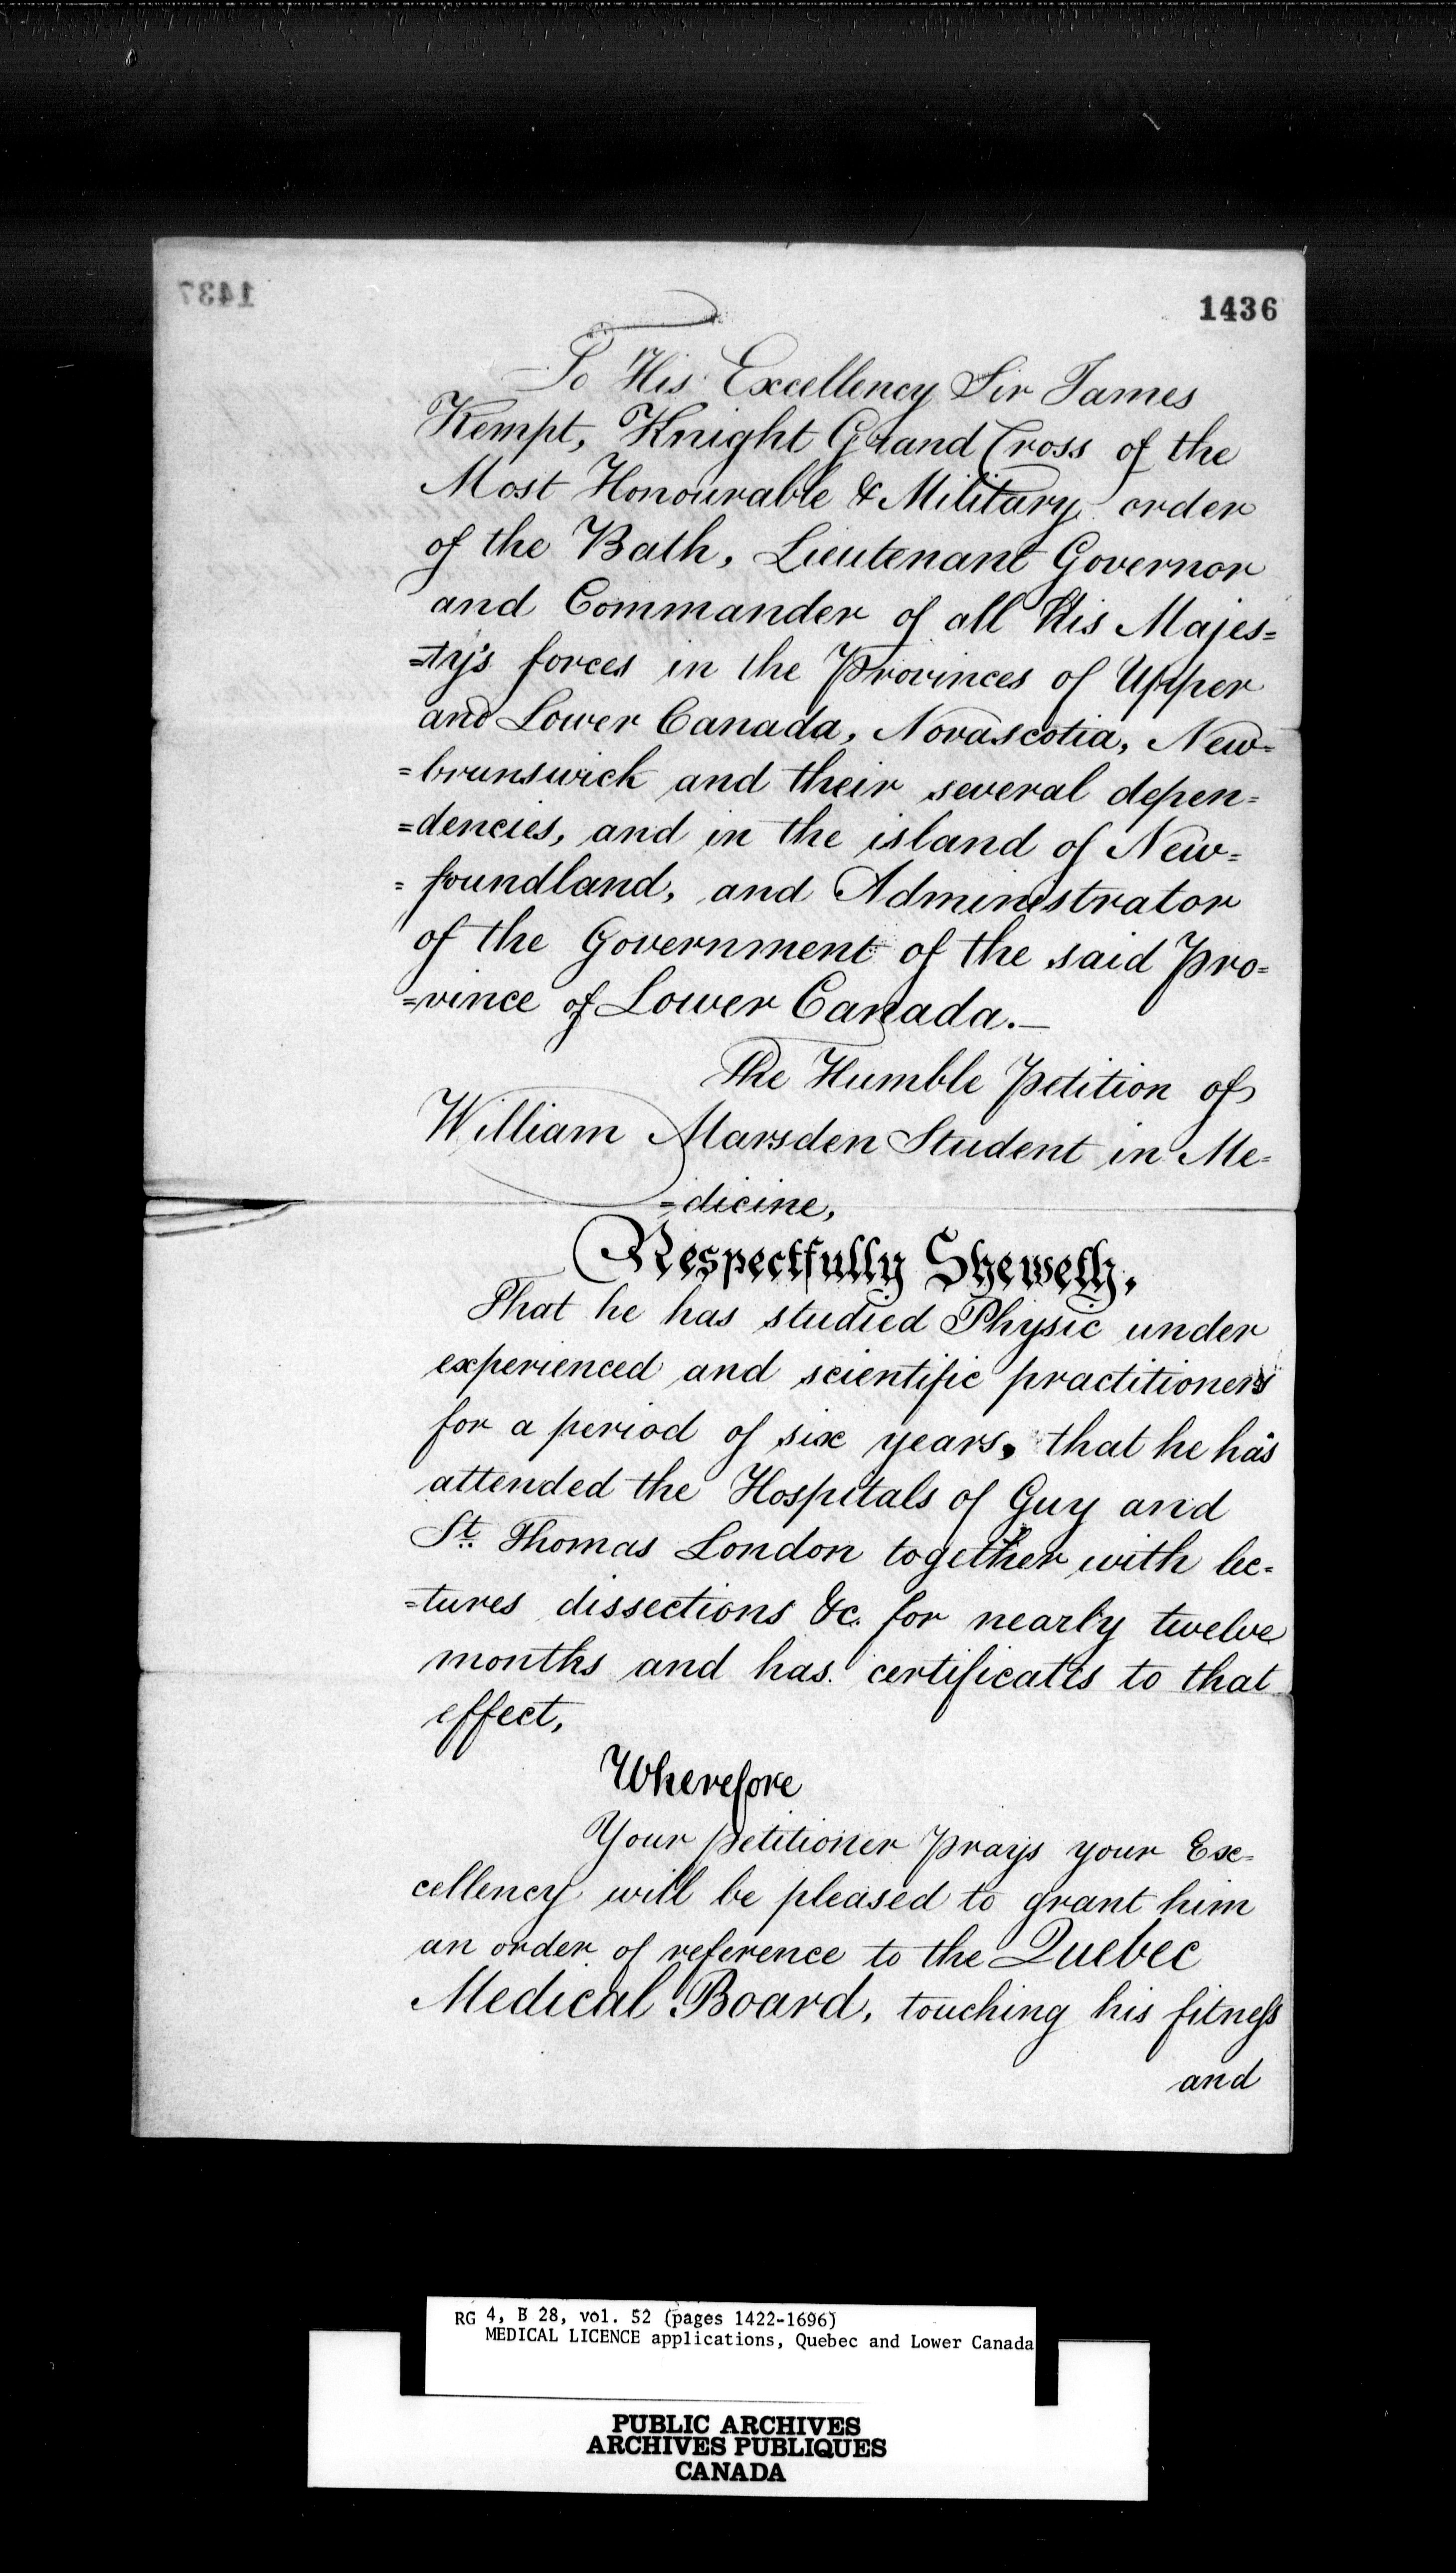 1437
1436
To His Excellency Sir James
Kempt, Knight Grand Cross of the
Most Honourable & Military order
of the Bath, Lieutenant Governor
and Commander of all His Majes=
=ty's forces in the Provinces of Upper
and Lower Canada, Novascotia, New=
=brunswick and their several depen=
=dencies, and in the island of New=
=foundland, and Administrator
of the Government of the said Pro=
=vince of Lower Canada.—
The Humble Petition of
William Marsden Student in Me=
=dicine,
Respectfully Sheweth,
That he has studied Physic under
experienced and scientific practitioners
for a period of six years, that he has
attended the Hospitals of Guy and
St. Thomas London together with lec=
=tures dissections &c. for nearly twelve
months and has certificates to that
effect,
Wherefore
Your petitioner prays your Ex=
cellency will be pleased to grant him
an order of reference to the Quebec
Medical Board, touching his fitness
and
RG 4, B 28, vol. 52 (pages 1422-1696)
MEDICAL LICENCE applications, Quebec and Lower Canada
PUBLIC ARCHIVES
ARCHIVES PUBLIQUES
CANADA